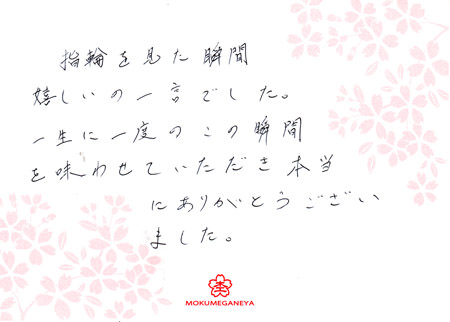 指輪を見た瞬間
嬉しいの一言でした。
一生に一度のこの瞬間
を味わせていただき本当
にありがとうござい
ました。
MOKUMEGANEYA